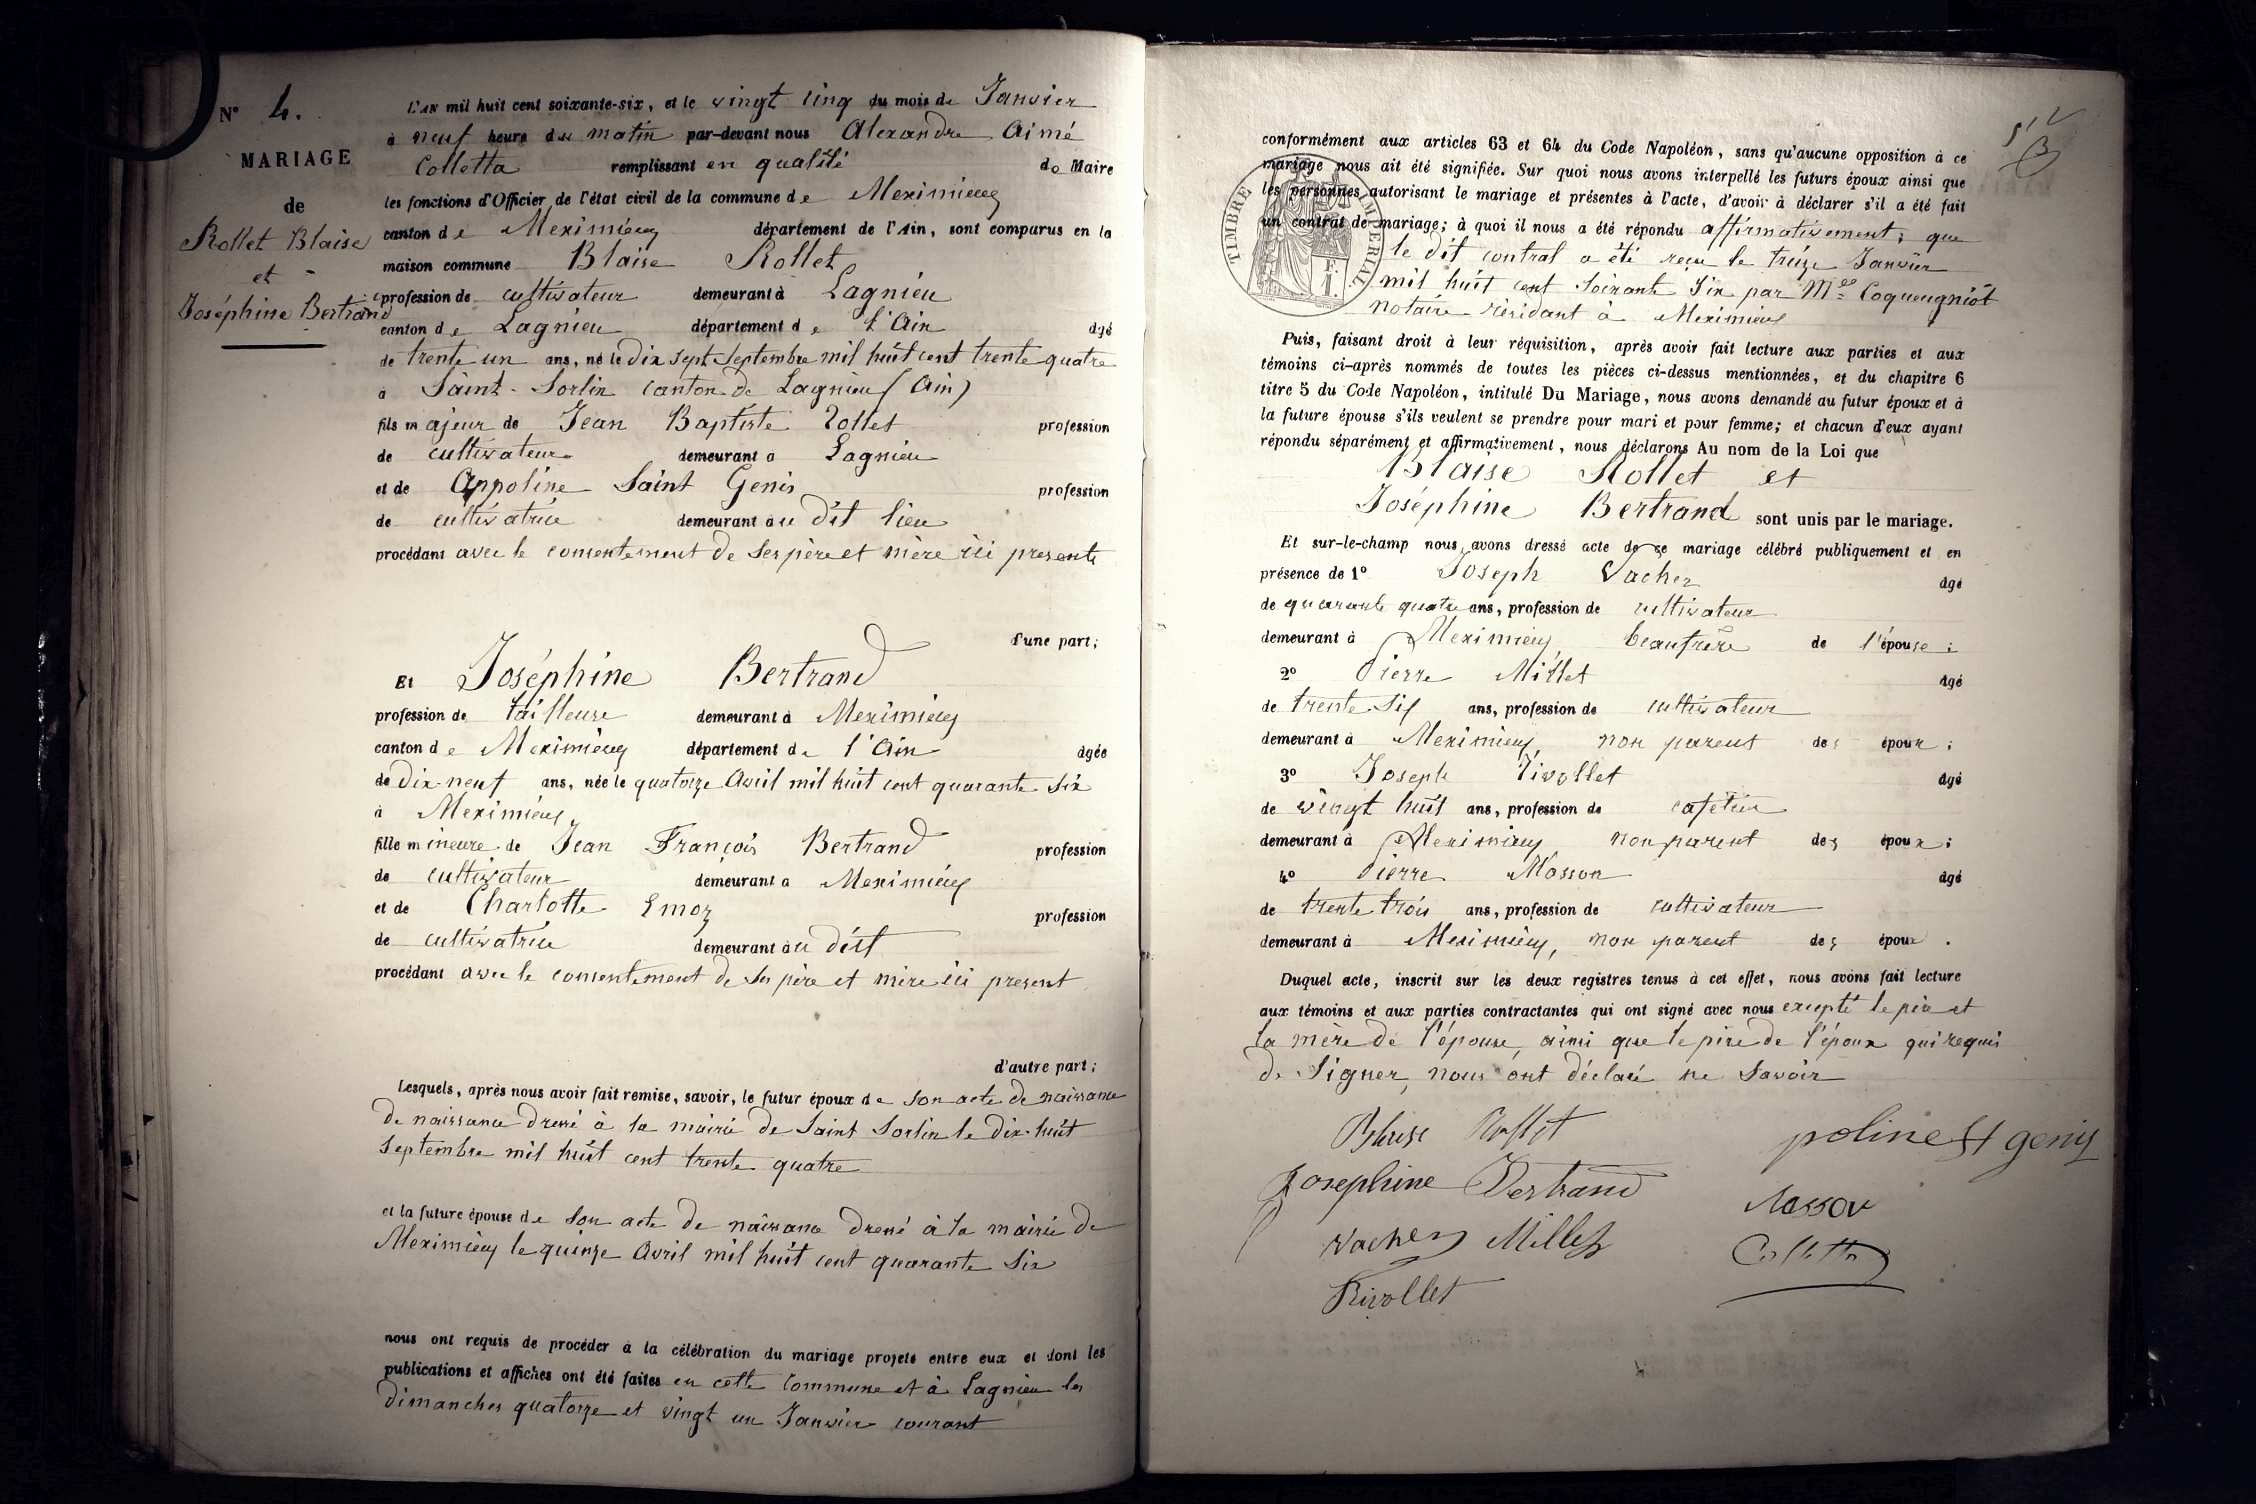 N° 4.
MARIAGE
de
Rollet Blaise
et
Joséphine Bertrand
L'AN mil huit cent soixante-six, et le vingt cinq du mois de Janvier
à neuf heure du matin par-devant nous Alexandre Aimé
Colletta remplissant en qualité de Maire
les fonctions d'Officier de l'état civil de la commune de Meximieux
canton de Meximieux département de l'Ain, sont comparus en la
maison commune Blaise Rollet
profession de cultivateur demeurant à Lagnieu
canton de Lagnieu département de l'Ain âgé
de trente un ans, né le dix sept Septembre mil huit cent trente quatre
à Saint-Sorlin canton de Lagnieu (Ain)
fils majeur de Jean Baptiste Rollet profession
de cultivateur demeurant à Lagnieu
et de Appoline Saint Genis profession
de cultivatrice demeurant au dit lieu
procédant avec le consentement de ses père et mère ici presents
d'une part;
Et Joséphine Bertrand
profession de tailleuse demeurant à Meximieux
canton de Meximieux département de l'Ain âgée
de dix-neuf ans, née le quatorze Avril mil huit cent quarante six
à Meximieux
fille mineure de Jean François Bertrand profession
de cultivateur demeurant à Meximieux
et de Charlotte Emoz profession
de cultivatrice demeurant au dit
procédant avec le consentement de ses père et mère ici present
d'autre part;
Lesquels, après nous avoir fait remise, savoir, le futur époux de son acte de naissance
de naissance dressé à la mairie de Saint Sorlin le dix-huit
Septembre mil huit cent trente quatre
et la future épouse de son acte de naissance dressé à la mairie de
Meximieux le quinze Avril mil huit cent quarante six
nous ont requis de procéder à la célébration du mariage projeté entre eux et dont les
publications et affiches ont été faites en cette commune et à Lagnieu les
dimanches quatorze et vingt un Janvier courant
conformément aux articles 63 et 64 du Code Napoléon, sans qu'aucune opposition à ce
mariage nous ait été signifiée. Sur quoi nous avons interpellé les futurs époux ainsi que
les personnes autorisant le mariage et présentes à l'acte, d'avoir à déclarer s'il a été fait
un contrat de mariage; à quoi il nous a été répondu affirmativement; que
le dit contrat a été reçu le treize Janvier
mil huit cent soixante six par Me Coqueugniot
notaire résidant à Meximieux
TIMBRE IMPERIAL
F.
1.
Puis, faisant droit à leur réquisition, après avoir fait lecture aux parties et aux
témoins ci-après nommés de toutes les pièces ci-dessus mentionnées, et du chapitre 6
titre 5 du Code Napoléon, intitulé Du Mariage, nous avons demandé au futur époux et à
la future épouse s'ils veulent se prendre pour mari et pour femme; et chacun d'eux ayant
répondu séparément et affirmativement, nous déclarons Au nom de la Loi que
Blaise Rollet et
Joséphine Bertrand sont unis par le mariage.
Et sur-le-champ nous avons dressé acte de ce mariage célébré publiquement et en
présence de 1° Joseph Vacher âgé
de quarante quatre ans, profession de cultivateur
demeurant à Meximieux beaufrère de l'épouse;
2° Pierre Millet âgé
de trente six ans, profession de cultivateur
demeurant à Meximieux, non parent des époux;
3° Joseph Rivollet âgé
de vingt huit ans, profession de cafetier
demeurant à Meximieux non parent des époux;
4° Pierre Masson âgé
de trente trois ans, profession de cultivateur
demeurant à Meximieux, non parent des époux.
Duquel acte, inscrit sur les deux registres tenus à cet effet, nous avons fait lecture
aux témoins et aux parties contractantes qui ont signé avec nous excepté le père et
la mère de l'épouse, ainsi que le père de l'époux qui requis
de signer, nous ont déclaré ne savoir
Blaise Rollet poline St genis
Josephine Bertrand
Masson
Vacher Millet
Colletta
Rivollet